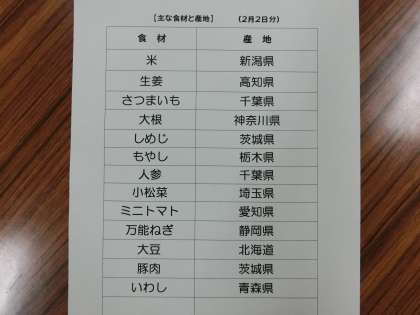 【主な食材と産地】 (2月2日分)
食 材 産 地
米 新潟県
生姜 高知県
さつまいも 千葉県
大根 神奈川県
しめじ 茨城県
もやし 栃木県
人参 千葉県
小松菜 埼玉県
ミニトマト 愛知県
万能ねぎ 静岡県
大豆 北海道
豚肉 茨城県
いわし 青森県